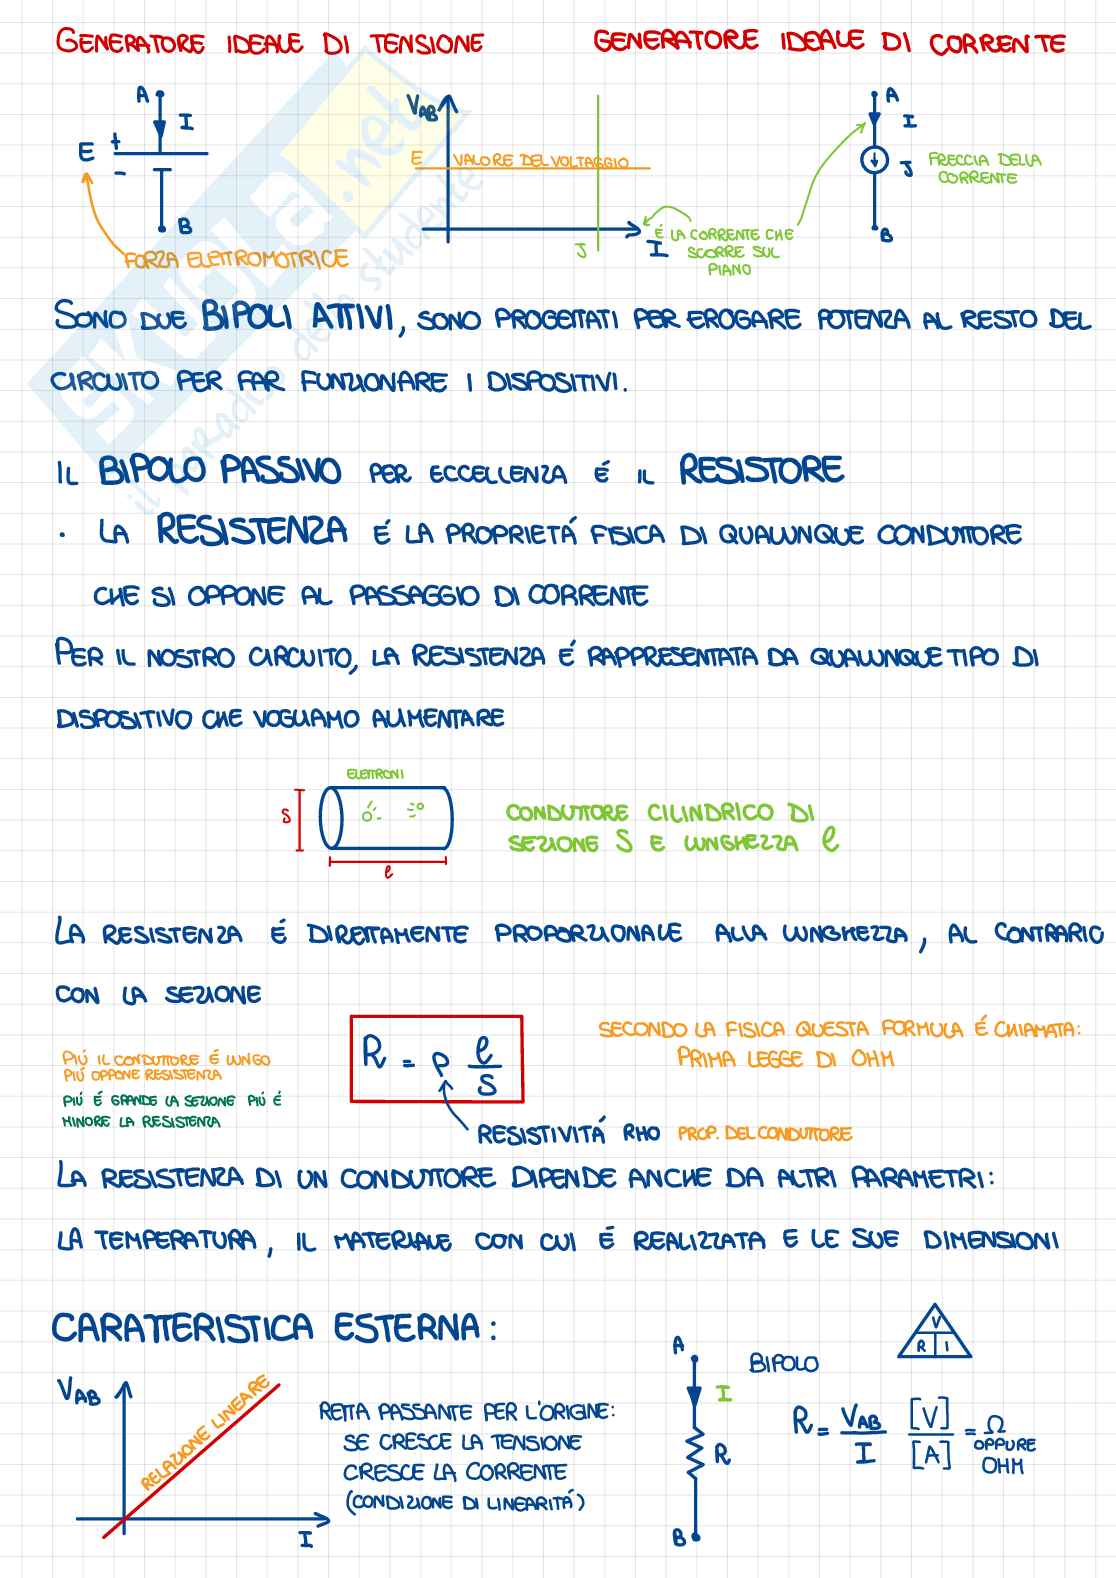 GENERATORE IDEALE DI TENSIONE
GENERATORE IDEALE DI CORRENTE
A
I
E
+
-
B
FORZA ELETTROMOTRICE
VAB
E VALORE DEL VOLTAGGIO
J
I
È LA CORRENTE CHE
SCORRE SUL
PIANO
A
I
J
B
FRECCIA DELLA
CORRENTE
SONO DUE BIPOLI ATTIVI, SONO PROGETTATI PER EROGARE POTENZA AL RESTO DEL
CIRCUITO PER FAR FUNZIONARE I DISPOSITIVI.
IL BIPOLO PASSIVO PER ECCELLENZA É IL RESISTORE
· LA RESISTENZA É LA PROPRIETÁ FISICA DI QUALUNQUE CONDUTTORE
CHE SI OPPONE AL PASSAGGIO DI CORRENTE
PER IL NOSTRO CIRCUITO, LA RESISTENZA É RAPPRESENTATA DA QUALUNQUE TIPO DI
DISPOSITIVO CHE VOGLIAMO ALIMENTARE
ELETTRONI
S
l
CONDUTTORE CILINDRICO DI
SEZIONE S E LUNGHEZZA l
LA RESISTENZA É DIRETTAMENTE PROPORZIONALE ALLA LUNGHEZZA, AL CONTRARIO
CON LA SEZIONE
PIÚ IL CONDUTTORE É LUNGO
PIÚ OPPONE RESISTENZA
PIÚ É GRANDE LA SEZIONE PIÚ É
MINORE LA RESISTENZA
R = ρ l/S
RESISTIVITÁ RHO PROP. DEL CONDUTTORE
SECONDO LA FISICA QUESTA FORMULA É CHIAMATA:
PRIMA LEGGE DI OHM
LA RESISTENZA DI UN CONDUTTORE DIPENDE ANCHE DA ALTRI PARAMETRI:
LA TEMPERATURA, IL MATERIALE CON CUI É REALIZZATA E LE SUE DIMENSIONI
CARATTERISTICA ESTERNA:
VAB
RELAZIONE LINEARE
I
RETTA PASSANTE PER L'ORIGINE:
SE CRESCE LA TENSIONE
CRESCE LA CORRENTE
(CONDIZIONE DI LINEARITÁ)
A
I
R
B
BIPOLO
V
R I
R = VAB/I [V]/[A] = Ω
OPPURE
OHM
SKUOLA.net
il paradiso dello studente